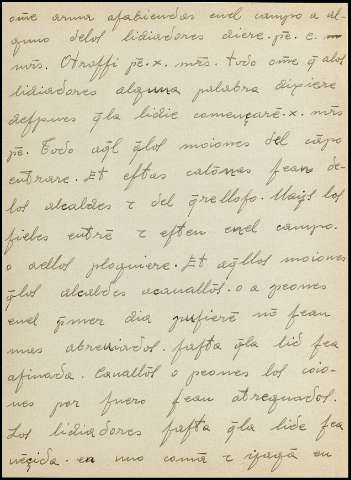 om̃e arma asabiendas enel campo a al-
guno delos lidiadores diere. pẽ. c.
mr̃s. Otrossi pẽ. x. mr̃s. todo om̃e q̃ alos
lidiadores alguna palabra dixiere
despues q̃la lidie començarẽ. x. mr̃s
pẽ. Todo aq̃l q̃los moiones del cãpo
entrare. Et estas calõnas sean de-
los alcaldes τ del q̃relloso. Mays los
fieles entrẽ τ esten enel campo.
o aellos ploguiere. Et aq̃llos moiones
q̃los alcaldes acauallos. o a peones
enel p̃mer dia pusierẽ nõ sean
mas abreuiados. fasta q̃la lid sea
afinada. Cauallos o peones los coio-
nes por fuero sean atreguados.
Los lidiadores fasta q̃la lide sea
uẽçida. en uno comã τ iagã en